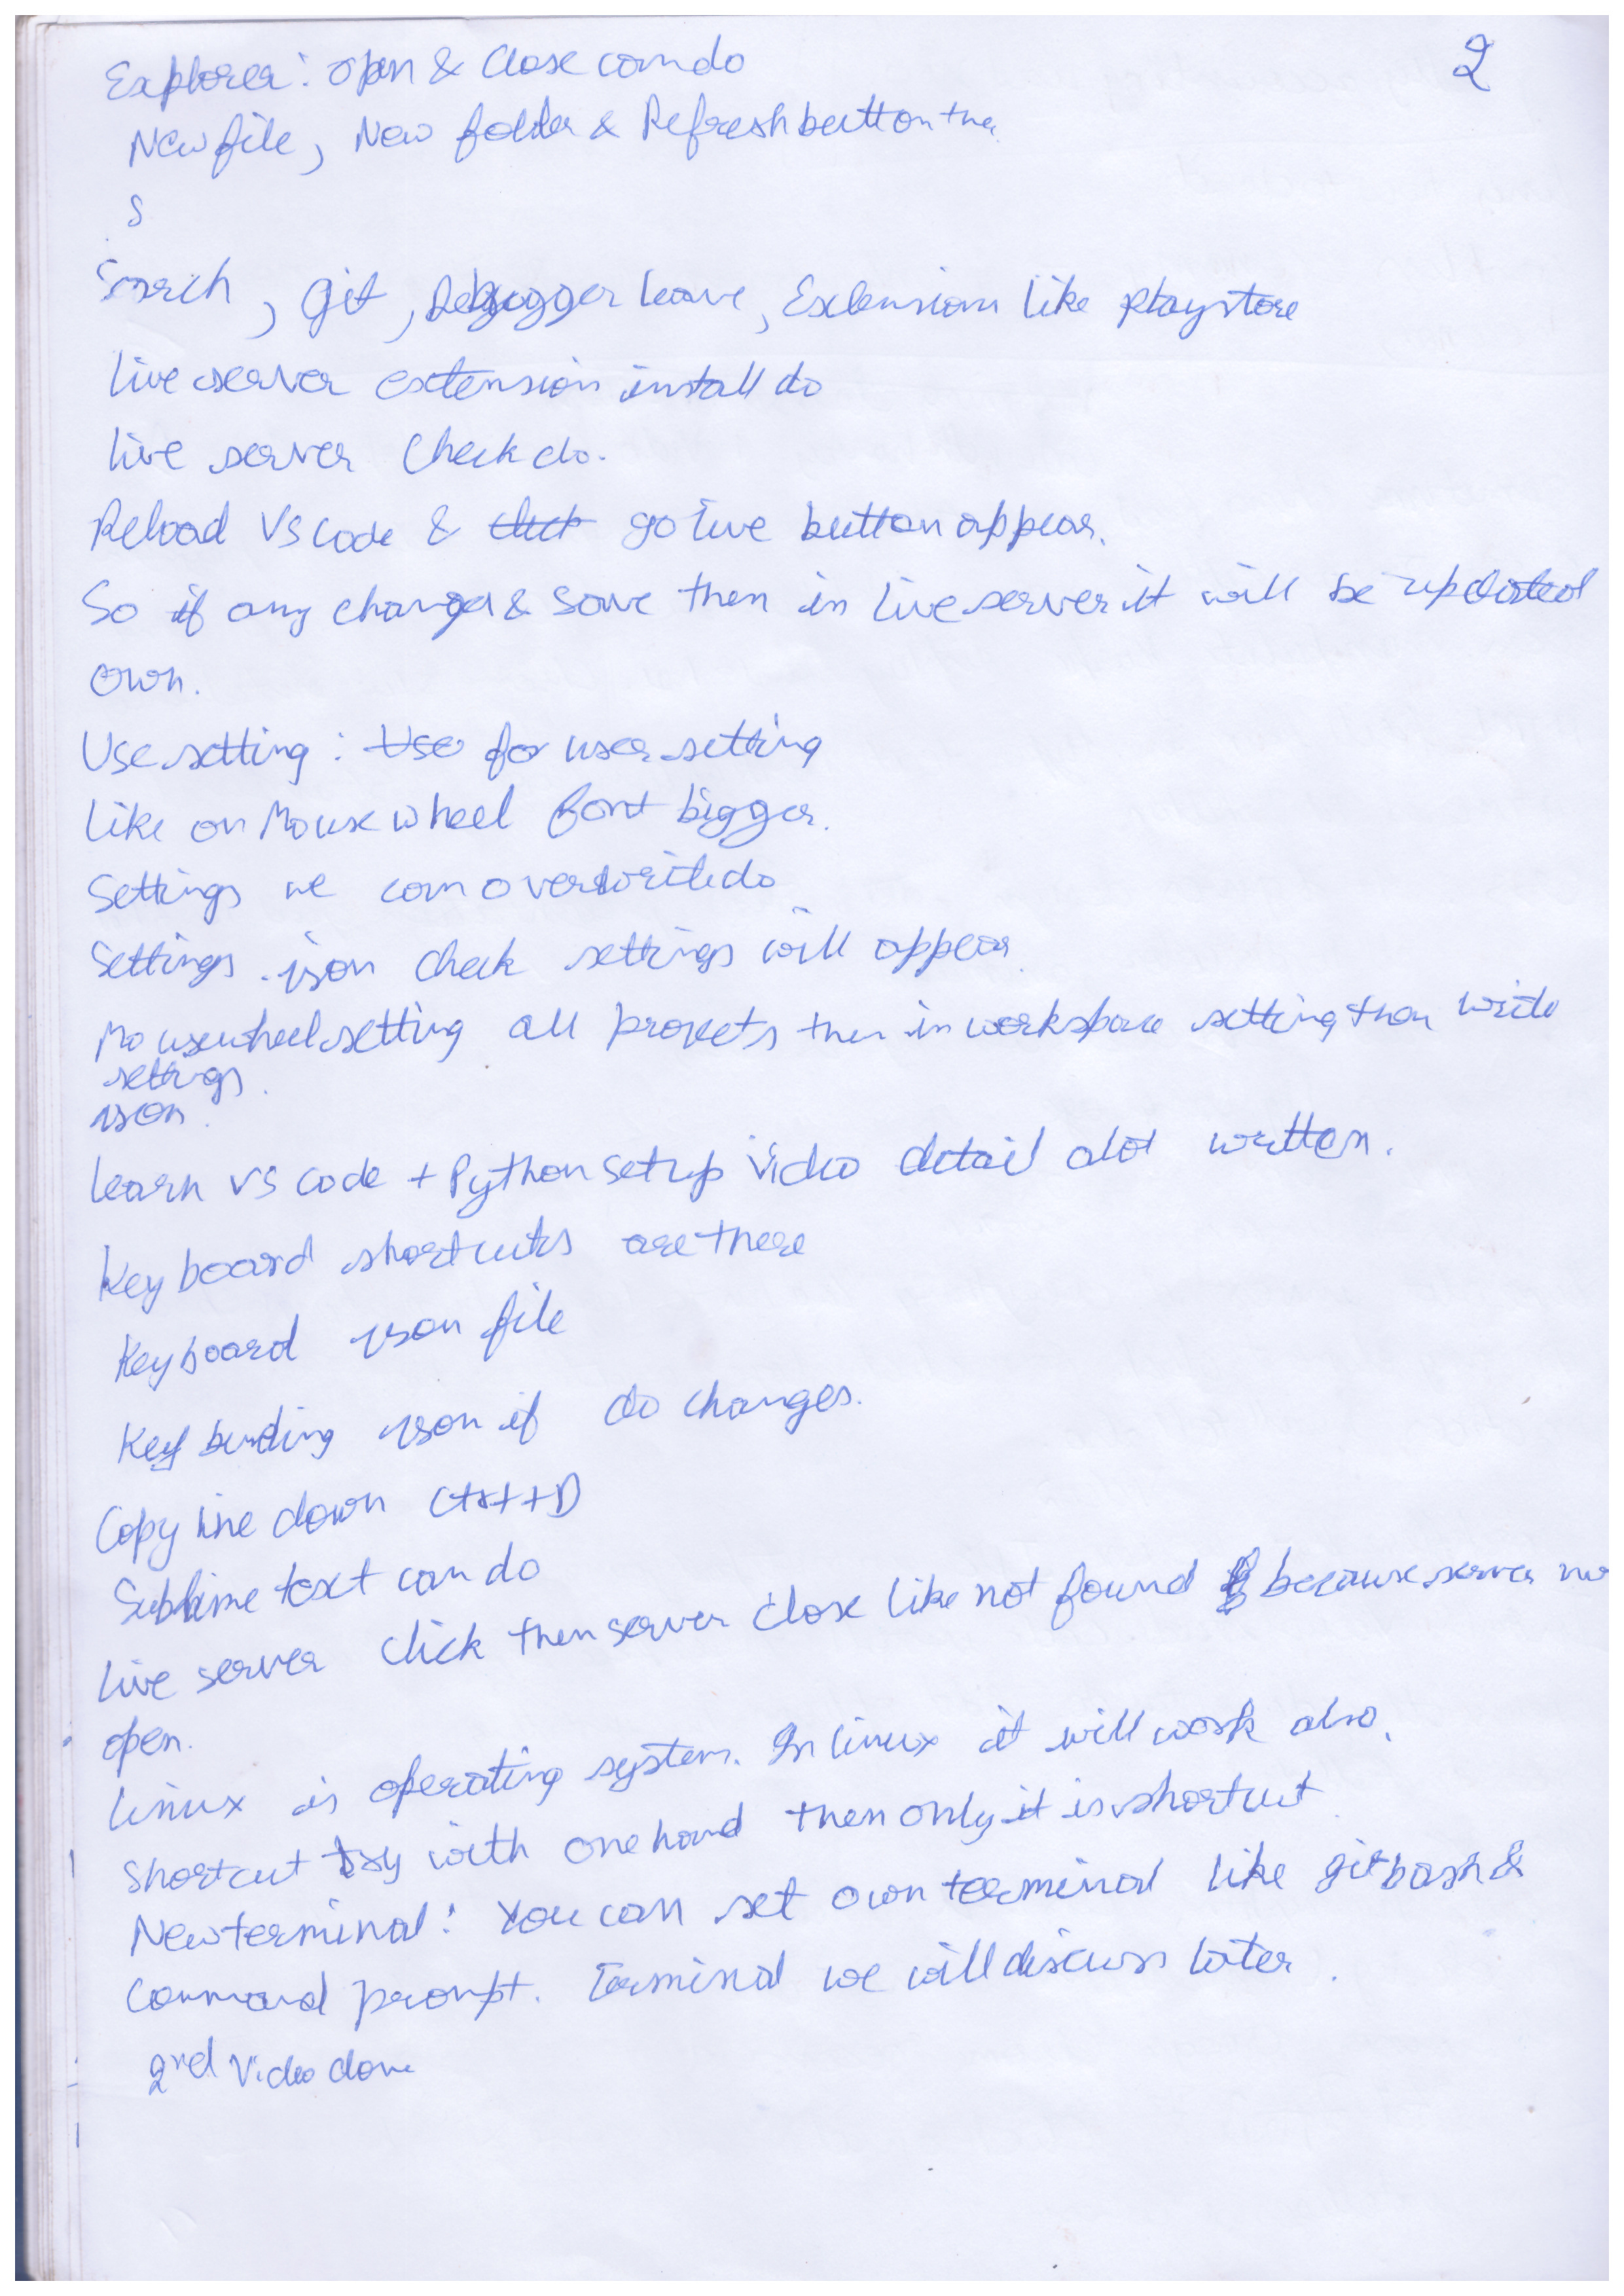 2
Explorer: open & Close can do
New file, New folder & Refresh button the
S
Search, git, Debugger leave, Extension like playstore
live server extension install do
live server Check do.
Reload VS code & click go live button appear.
So if any changes & save then in live server it will be updated
own.
Use setting: Use for user setting
like on Mouse wheel font bigger.
Settings we can overwrite do
Settings .json check settings will appear
Mousewheel setting all projects then in workspace setting than write
settings.
json.
learn vs code + Python setup video detail alot written.
Keyboard shortcuts are there
Keyboard json file
Key binding json if do changes.
Copy line down Ctrl + D
Sublime text can do
live server click then server close like not found because server no
open.
linux is operating system. In linux it will work also.
Shortcut try with one hand then only it is shortcut.
New terminal: You can set own terminal like git bash &
Command prompt. Terminal we will discuss later.
2nd Video done